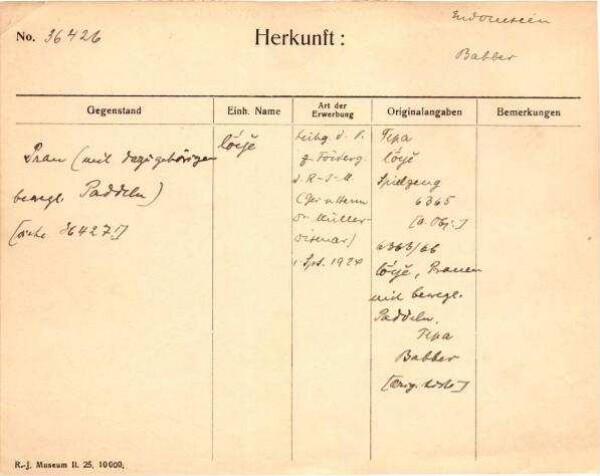 No. 36426
Herkunft:
Indonesien
Babber
Gegenstand
Einh. Name
Art der
Erwerbung
Originalangaben
Bemerkungen
Prau (mit dazugehörigen
bewegl. Paddeln)
[siehe 36427!]
lóijĕ
Leihg. d. V.
z. Förderg.
d. R-J-M.
Müller-
Wismar)
1. Spt. 1924
Tepa
lóijĕ
Spielzeug
6365
[a. Obj.]
6365/66
lóijĕ, Prauen
mit bewegl.
Paddeln.
Tepa
Babber
[Orig. Liste]
R.-J. Museum II. 25. 10000.